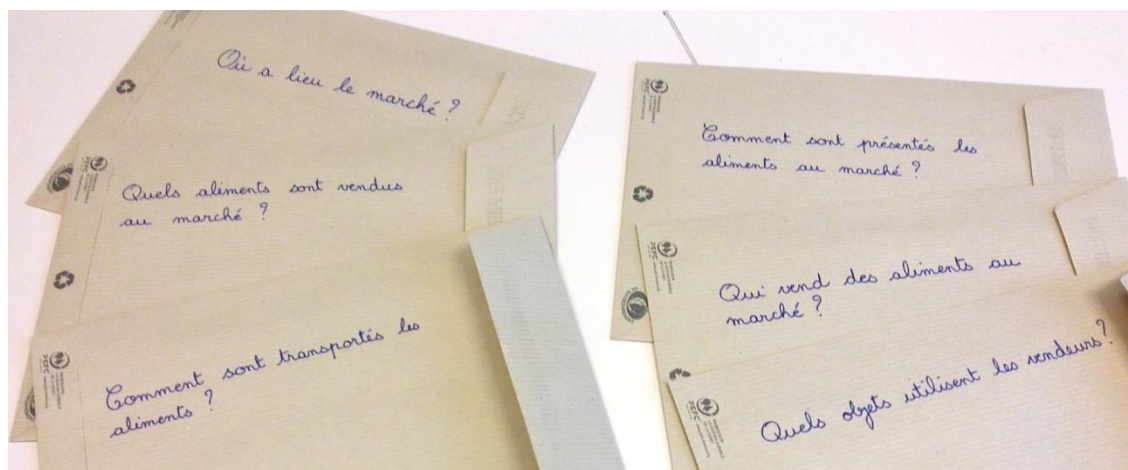 Où a lieu le marché ?
Quels aliments sont vendus
au marché ?
Comment sont transportés les
aliments ?
Comment sont présentés les
aliments au marché ?
Qui vend des aliments au
marché ?
Quels objets utilisent les vendeurs ?
PEFC
PEFC
PEFC
PEFC